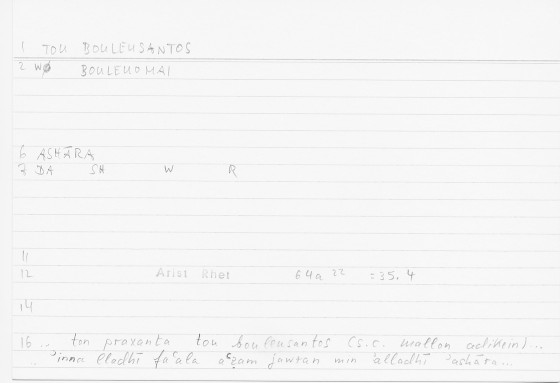 1 TOU BOULEUSANTOS
2 W∅ BOULEUOMAI
6 ASHĀRA
7 DA SH W R
11
12 Arist Rhet 64a 22 = 35.4
14
16 .. ton praxanta tou bouleusantos (s.c. mallon adikein) ..
.. ʾinna lladhī faʿala aʿẓam jawran min ʾalladhī ʾashāra ...